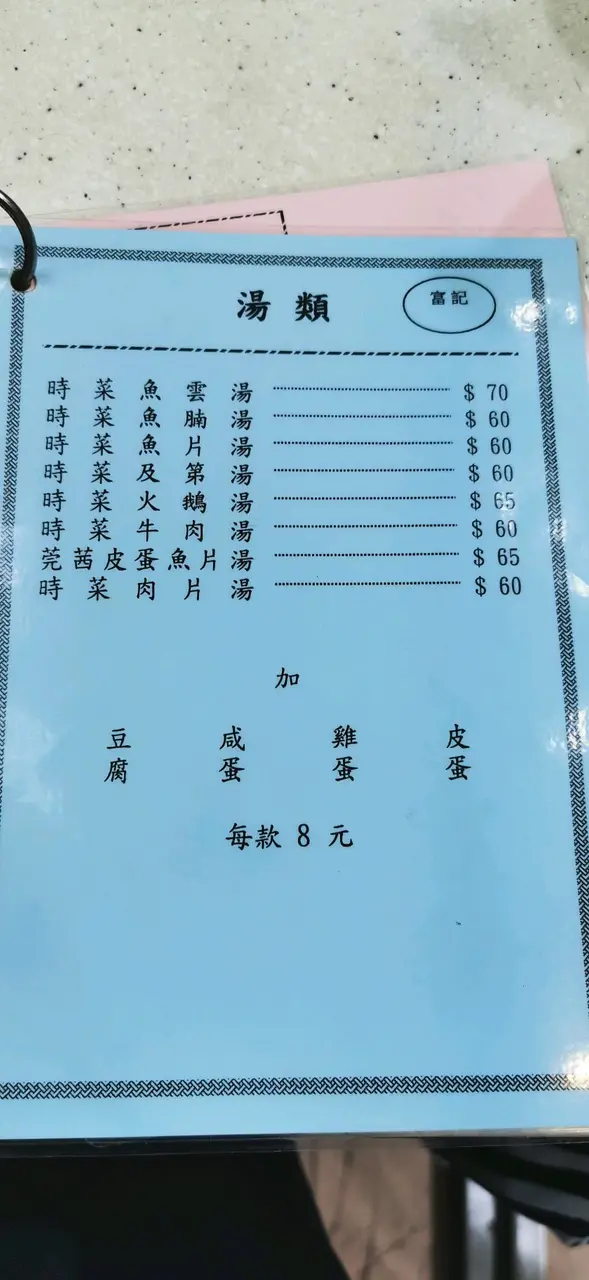 湯類
富記
時菜魚雲湯 $ 70
時菜魚腩湯 $ 60
時菜魚片湯 $ 60
時菜及第湯 $ 60
時菜火鵝湯 $ 65
時菜牛肉湯 $ 60
莞茜皮蛋魚片湯 $ 65
時菜肉片湯 $ 60
加
豆腐 咸蛋 雞蛋 皮蛋
每款 8 元